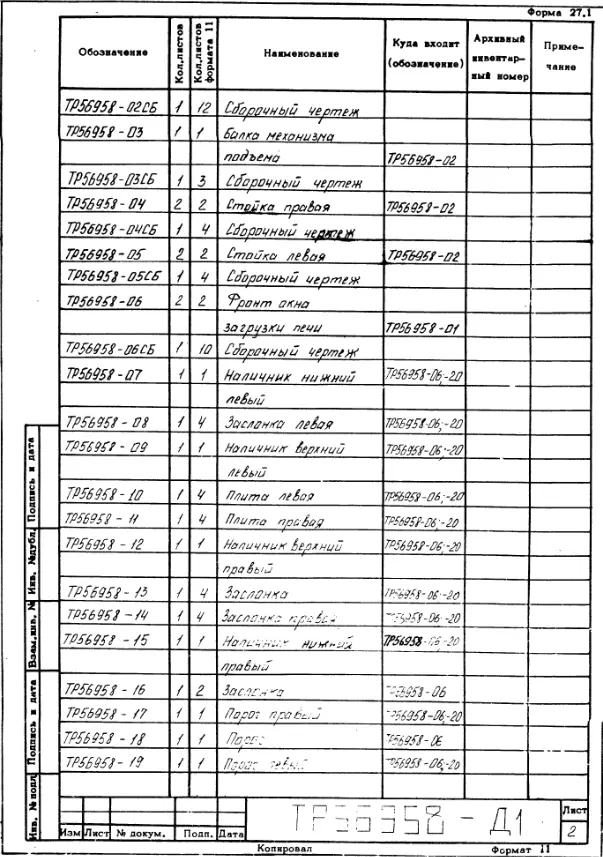 Форма 27.1
Обозначение Кол.листов Кол.листов формата 11 Наименование Куда входит (обозначение) Архивный инвентарный номер Примечание
ТР56958-02СБ 1 12 Сборочный чертеж
ТР56958-03 1 1 Балка механизма
подъема ТР56958-02
ТР56958-03СБ 1 3 Сборочный чертеж
ТР56958-04 2 2 Стойка правая ТР56958-02
ТР56958-04СБ 1 4 Сборочный чертеж
ТР56958-05 2 2 Стойка левая ТР56958-02
ТР56958-05СБ 1 4 Сборочный чертеж
ТР56958-06 2 2 Фронт окна
загрузки печи ТР56958-01
ТР56958-06СБ 1 10 Сборочный чертеж
ТР56958-07 1 1 Наличник нижний ТР56958-06;-20
левый
ТР56958-08 1 4 Заслонка левая ТР56958-06;-20
ТР56958-09 1 1 Наличник верхний ТР56958-06;-20
левый
ТР56958-10 1 4 Плита левая ТР56958-06;-20
ТР56958-11 1 4 Плита правая ТР56958-06;-20
ТР56958-12 1 1 Наличник верхний ТР56958-06;-20
правый
ТР56958-13 1 4 Заслонка ТР56958-06;-20
ТР56958-14 1 4 Заслонка правая ТР56958-06;-20
ТР56958-15 1 1 Наличник нижний ТР56958-06-20
правый
ТР56958-16 1 2 Заслонка ТР56958-06
ТР56958-17 1 1 Порог правый ТР56958-06;-20
ТР56958-18 1 1 Порог ТР56958-06
ТР56958-19 1 1 Порог левый ТР56958-06;-20
Инв. № подл Подпись и дата Взам.инв. № Инв. №дубл. Подпись и дата
Изм Лист № докум. Подп. Дата
ТР56958-Д1
Лист
2
Копировал Формат 11